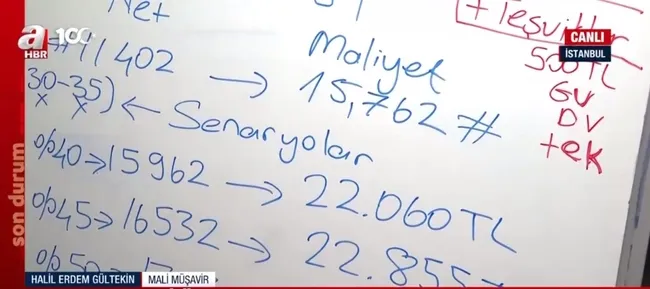 a
HBR
100
Net
+ Teşvikler
CANLI
İSTANBUL
# 11402 → Maliyet 15,762 #
500 TL
GV
DV
tek
30-35)
x x
← Senaryolar
%40 → 15962 → 22.060 TL
%45 → 16532 → 22.855
%50 →
son durum
HALİL ERDEM GÜLTEKİN
MALİ MÜŞAVİR